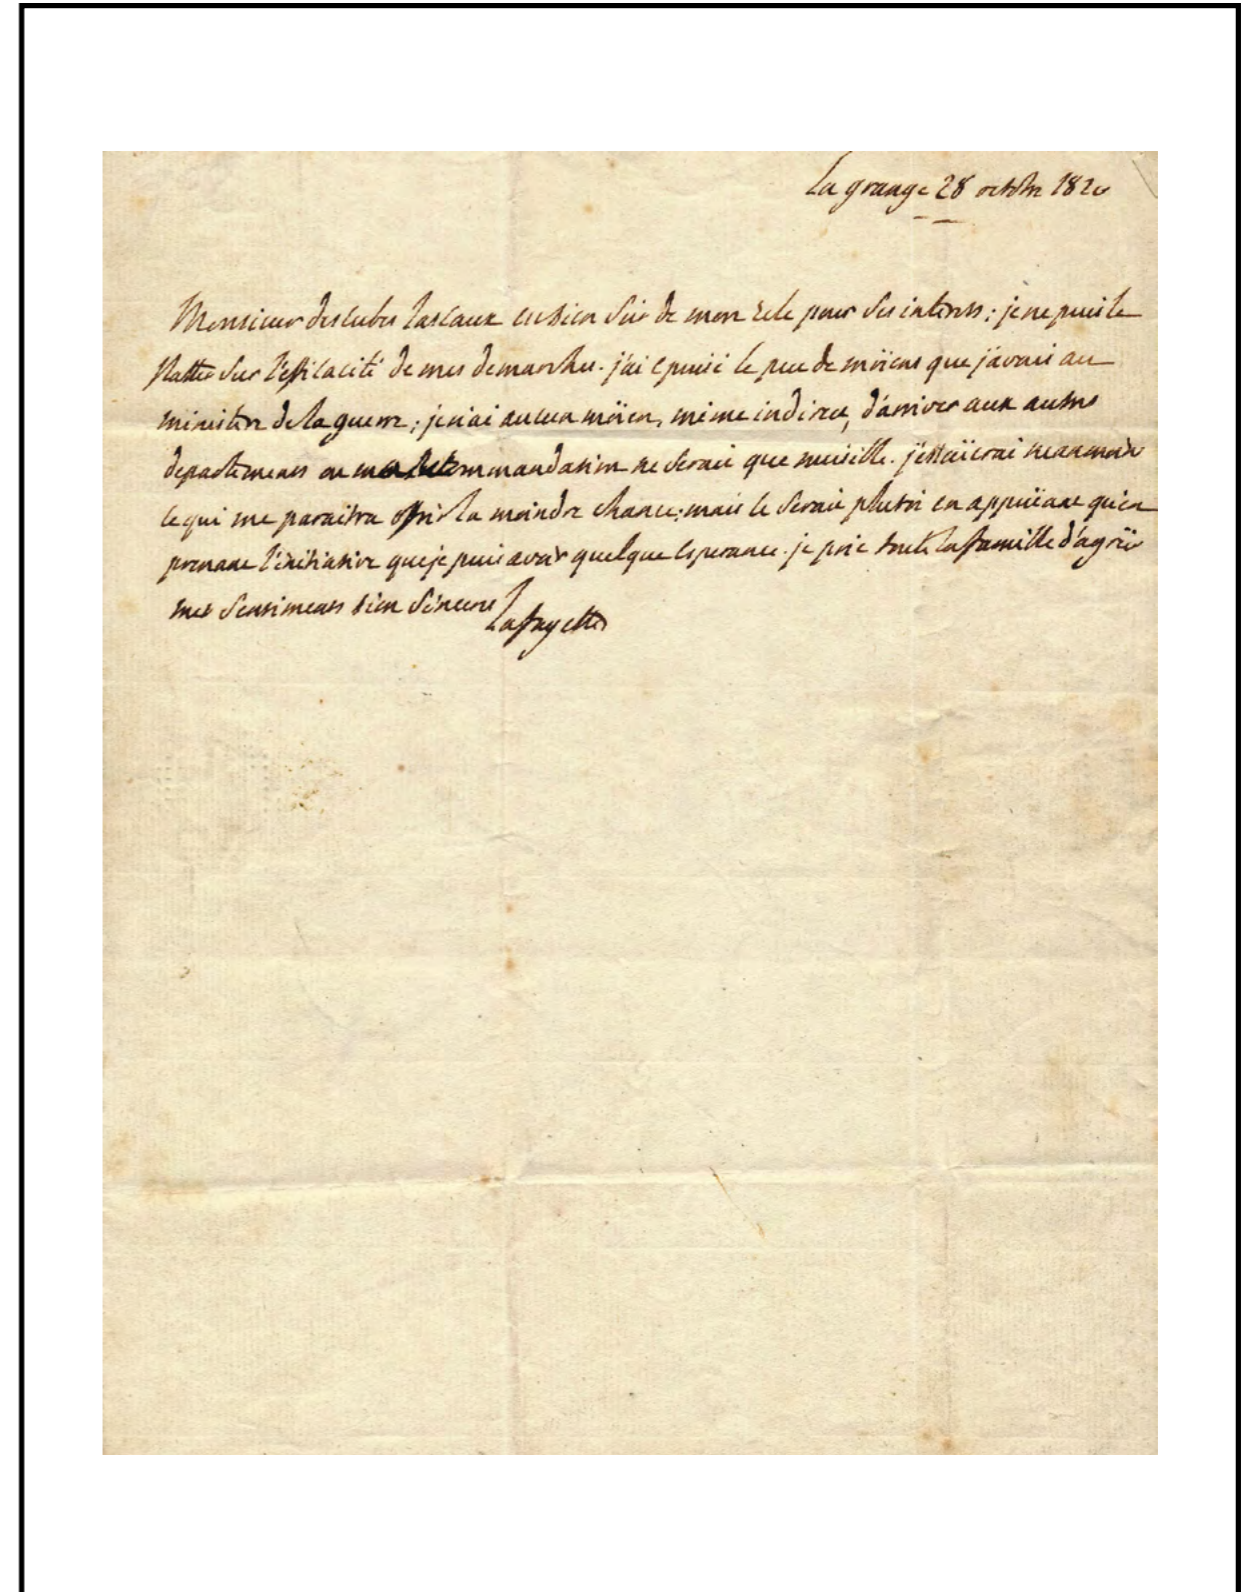 La grange 28 octobre 1820
Monsieur descubes Lascaux est bien sûr de mon zele pour ses interets; je ne puis le
flatter sur l'efficacité de mes demarches. j'ai epuisé le peu de moïens que j'avais au
ministere de la guerre; je n'ai aucun moïen, même indirect, d'arriver aux autres
departements ou ma recommandation ne serait que nuisible. j'essaïerai neanmoins
ce qui me paraitra offrir la moindre chance; mais ce serait plutot en appuïant qu'en
prenant l'initiative que je puis avoir quelque esperance. je prie toute la famille d'agréer
mes sentiments bien sinceres
Lafayette